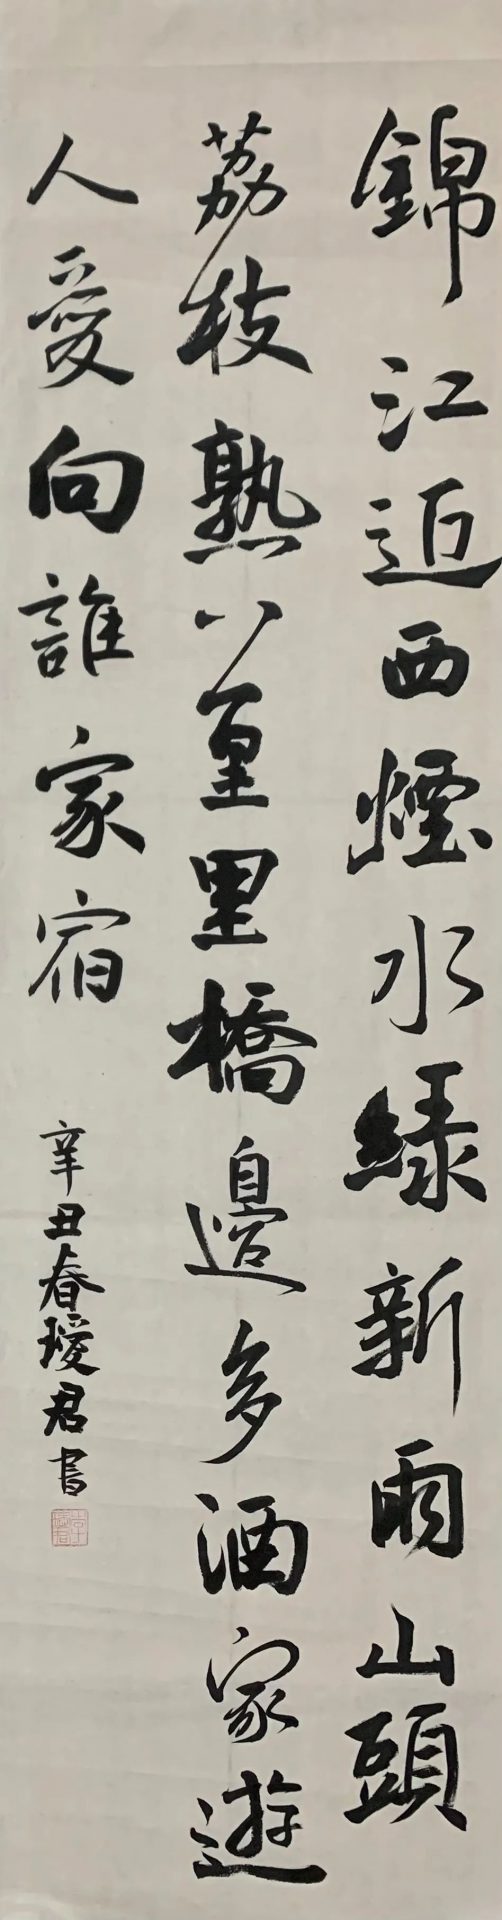 錦江近西煙水綠新雨山頭
荔枝熟萬里橋邊多酒家遊
人愛向誰家宿
辛丑春璦君書